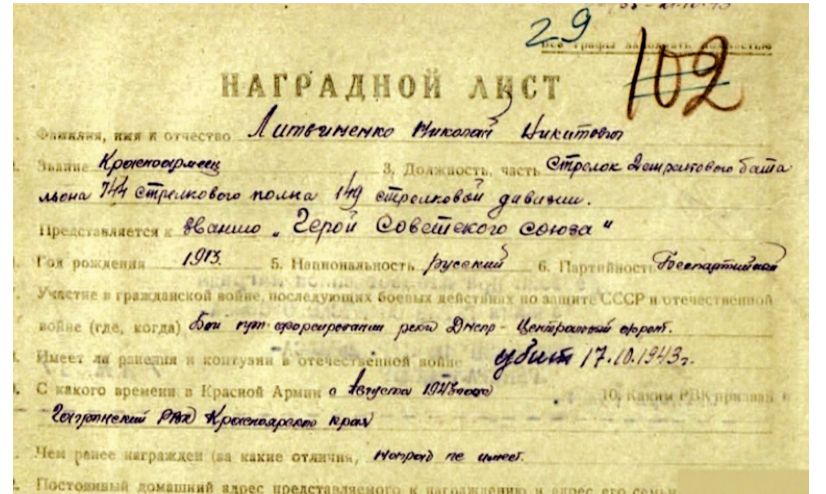 29
Все графы заполнять полностью
102
НАГРАДНОЙ ЛИСТ
Фамилия, имя и отчество Литвиненко Николай Никитович
Звание Красноармеец 3. Должность, часть Стрелок 2 стрелкового бата
льона 744 стрелкового полка 149 стрелковой дивизии.
Представляется к званию „Герой Советского союза"
Год рождения 1913. 5. Национальность русский 6. Партийность Беспартийный
Участие в гражданской войне, последующих боевых действиях по защите СССР и отечественной
войне (где, когда) Бои при форсировании реки Днепр - Центральный фронт.
Имеет ли ранения и контузии в отечественной войне убит 17.10.1943г.
С какого времени в Красной Армии с Августа 1943 года 10. Каким РВК призван
РВК Красноярского края
Чем ранее награжден (за какие отличия) Наград не имеет.
Постоянный домашний адрес представляемого к награждению и адрес его семьи